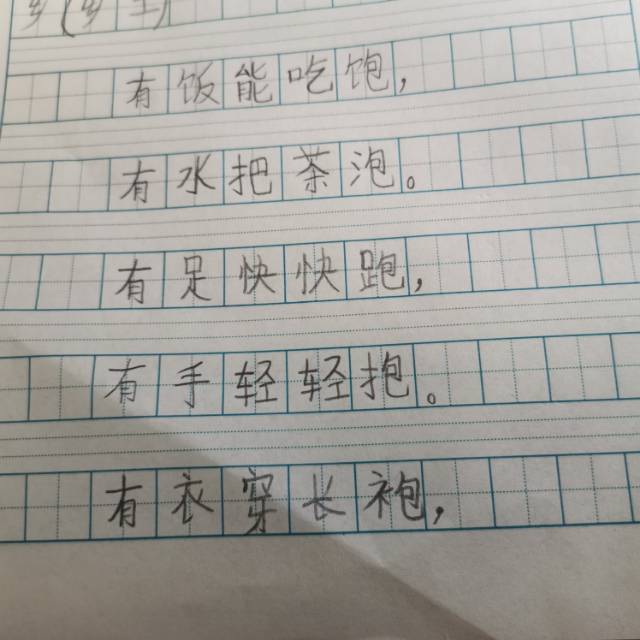 有饭能吃饱，
有水把茶泡。
有足快快跑，
有手轻轻抱。
有衣穿长袍，